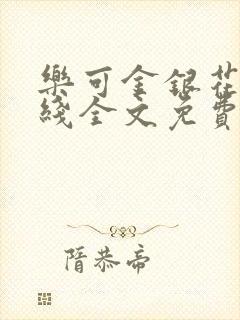 樂可金銀花
綫全文免費
隋恭帝